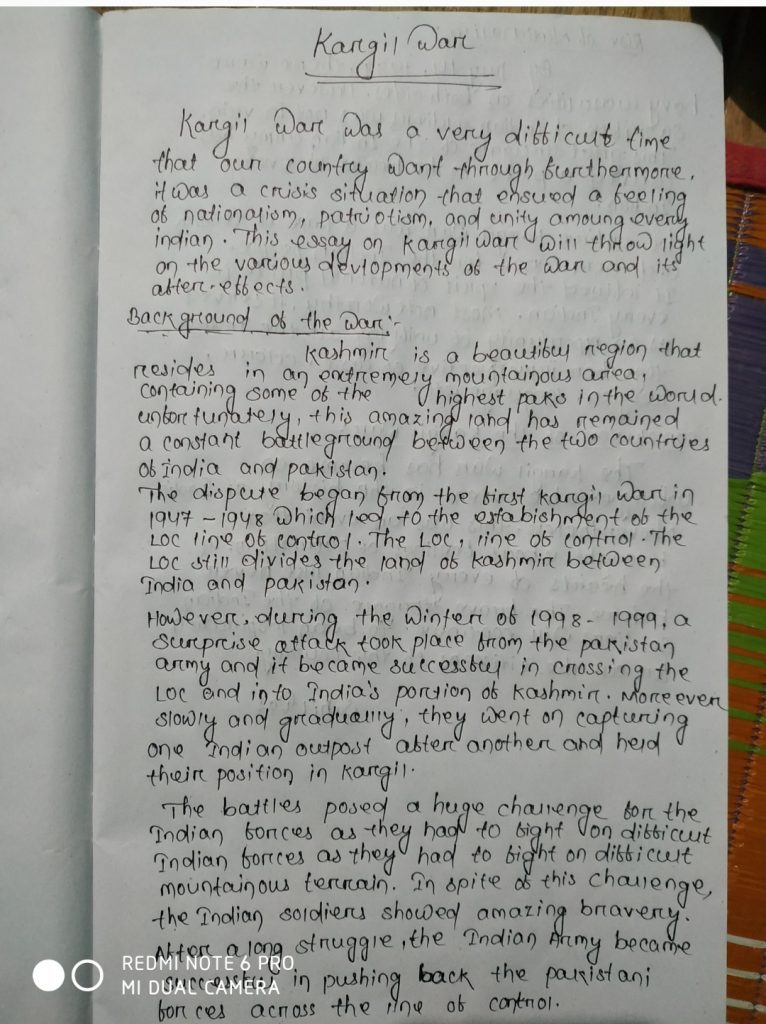 Kargil War
Kargil War was a very difficult time
that our country want through furthermore,
it was a crisis situation that ensued a feeling
of nationalism, patriotism, and unity amoung every
indian. This essay on Kargil war will throw light
on the various devlopments of the war and its
after-effects.
Background of the war:-
Kashmir is a beautiful region that
resides in an extremely mountainous area,
containing some of the highest paks in the world.
unfortunately, this amazing land has remained
a constant battleground between the two countries
of india and pakistan.
The dispute began from the first kargil war in
1947 - 1948 which led to the estabishment of the
LOC line of control. The LOC, line of control. The
LOC still divides the land of kashmir between
India and pakistan.
However, during the winter of 1998 - 1999, a
surprise attack took place from the pakistan
army and it became successful in crossing the
LOC and into India's portion of kashmir. Moreever
slowly and gradually, they went on capturing
one Indian outpost after another and held
their position in kargil.
The battles posed a huge challenge for the
Indian forces as they had to fight on difficult
Indian forces as they had to fight on difficult
mountainous terrain. In spite of this challenge,
the Indian soldiers showed amazing bravery.
After a long struggle, the Indian Army became
successful in pushing back the pakistani
forces across the line of control.
REDMI NOTE 6 PRO
MI DUAL CAMERA